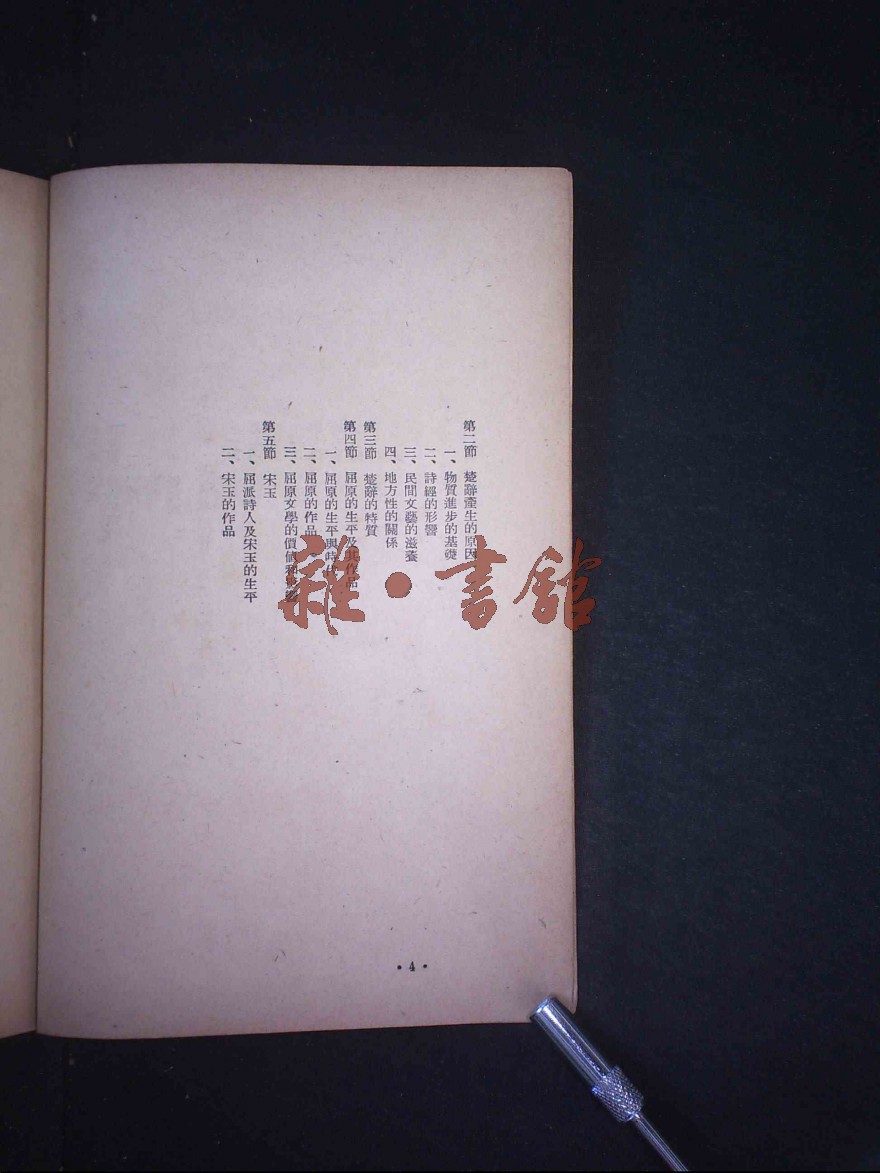 第二節　楚辭產生的原因
一、物質進步的基礎
二、詩經的形響
三、民間文藝的滋養
四、地方性的關係
第三節　楚辭的特質
第四節　屈原的生平及其作品
一、屈原的生平與時代
二、屈原的作品
三、屈原文學的價值和
第五節　宋玉
一、屈派詩人及宋玉的生平
二、宋玉的作品
•4•
雜•書館